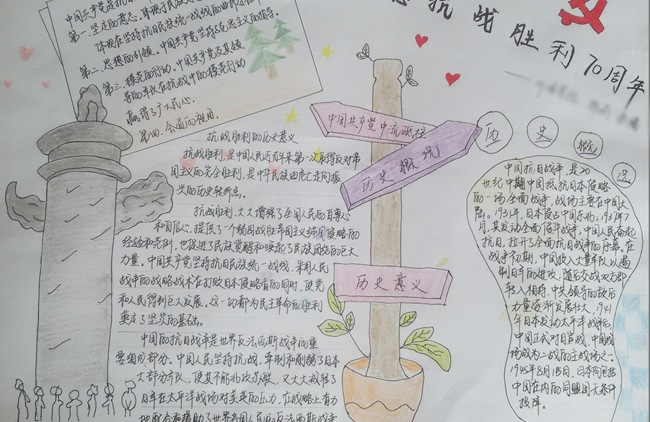 抗战胜利70周年
中国共产党是抗
第一、坚定的意志,
体现在坚持抗日民族统一战线的
第二、思想的引领,中国共产党坚持马克思主义的指导
第三、模范的行动,中国共产党及其领
导的军队在抗战中的模范行动
赢得了人民心。
第四、全面的视角。
抗战胜利的历史意义
抗战胜利,是中国人民近百年来第一次取得反对帝
国主义的完全胜利,是中华民族由危亡走向振
兴的历史转折点。
抗战胜利,大大增强了全国人民的自尊心
和自信心,提供了一个弱国战胜帝国主义强国侵略的
经验和范例,也促进了民族觉醒和唤起了民族团结的巨大
力量。中国共产党坚持抗日民族统一战线,采用人民
战争的战略战术在打败日本侵略者的同时,使党
和人民得到巨大发展,这一切都为民主革命的胜利
奠定了坚实的基础。
中国的抗日战争是世界反法西斯战争的重
要组成部分。中国人民坚持抗战,牵制和削弱了日本
大部分兵力,使其不能北攻苏联,又大大减轻了
日军在太平洋战场对英美的压力,在战略上有力
地配合和援助了世界各国人民的反法西斯战争
中国共产党中流砥柱
历史概况
历史意义
历 史 概 况
中国抗日战争是20
世纪中期中国抵抗日本侵略
的一场全面战争,战场主要在中国大
陆。1931年,日本侵占中国东北,1937年7
月,其发动全面侵华战争,中国人民奋起
抗日,拉开了全面抗日战争的序幕。在
战争初期,中国投入大量军队以遏
制日军的进攻,随后交战双方都
转入相持,中共领导的敌后
力量逐渐发展壮大,1941
年日本发动太平洋战争后,
中国正式对日宣战,中国战
场成为二战的主战场之一。
1945年8月15日,日本向包括
中国在内的同盟国无条件
投降。